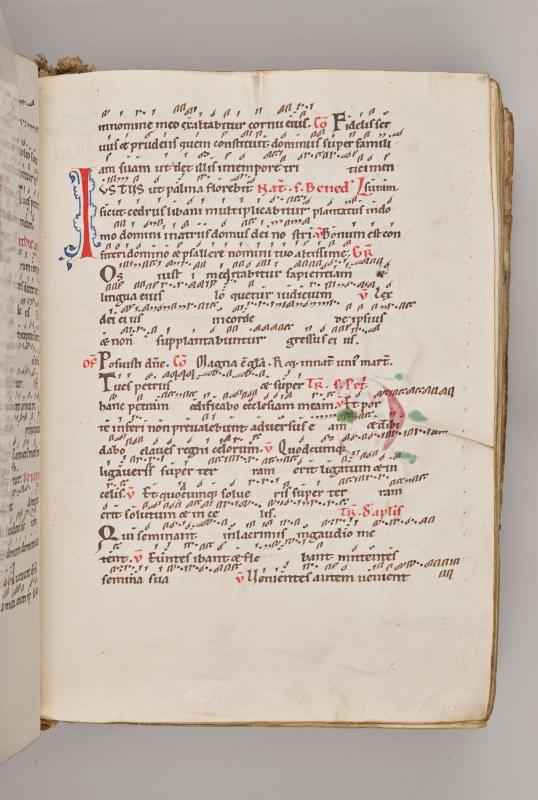 innomine meo exaltabitur cornu eius. Co Fidelis ser
uus & prudens quem constituit dominus super famili
am suam ut det illis intempore tri tici men
IUSTUS ut palma florebit Nat. s. Bened
sicut cedrus libani multiplicabitur plantatus indo
mo domini inatriis domus dei no stri. V Bonum est con
fiteri domino & psallere nomini tuo altissime. GR
Os iusti meditabitur sapientiam &
lingua eius lo quetur iudicium V Lex
dei eius incorde de ipsius
& non supplantabuntur gressus ei us.
OF Posuisti dne. Co Magna e gla. Req. innat. uni mart.
Tu es petrus & super TR. s. Pet
hanc petram edificabo ecclesiam meam. V Et por
te inferi non preualebunt aduersus e am & tibi
dabo claues regni celorum. V Quodcumq;
ligaueris super ter ram erit ligatum & in
celis. V Et quodcumq; solue ris super ter ram
erit solutum & in ce lis. TR. d aplis
Qui seminant inlacrimis ingaudio me
tent. V Euntes ibant & fle bant mittentes
semina sua V Uenientes autem uenient